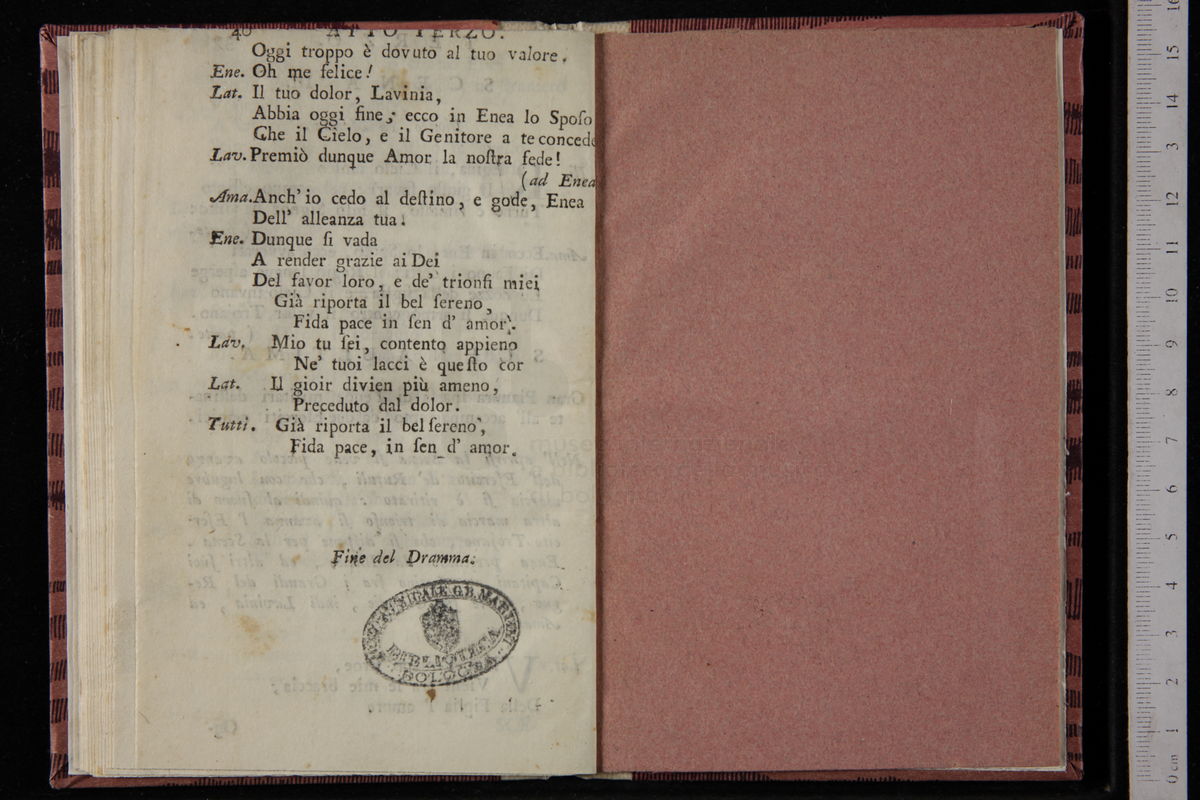 40 ATTO TERZO.
Oggi troppo è dovuto al tuo valore.
Ene. Oh me felice!
Lat. Il tuo dolor, Lavinia,
Abbia oggi fine; ecco in Enea lo Sposo
Che il Cielo, e il Genitore a te concede
Lav. Premiò dunque Amor la nostra fede!
(ad Enea
Ama. Anch' io cedo al destino, e gode, Enea
Dell' alleanza tua.
Ene. Dunque si vada
A render grazie ai Dei
Del favor loro, e de' trionfi miei
Già riporta il bel sereno,
Fida pace in sen d' amor.
Lav. Mio tu sei, contento appieno
Ne' tuoi lacci è questo cor
Lat. Il gioir divien più ameno,
Preceduto dal dolor.
Tutti. Già riporta il bel sereno,
Fida pace, in sen d' amor.
Fine del Dramma.
MUSICALE G.B. MARTINI
BIBLIOTECA
BOLOGNA
0 cm 1 2 3 4 5 6 7 8 9 10 11 12 3 14 15 16